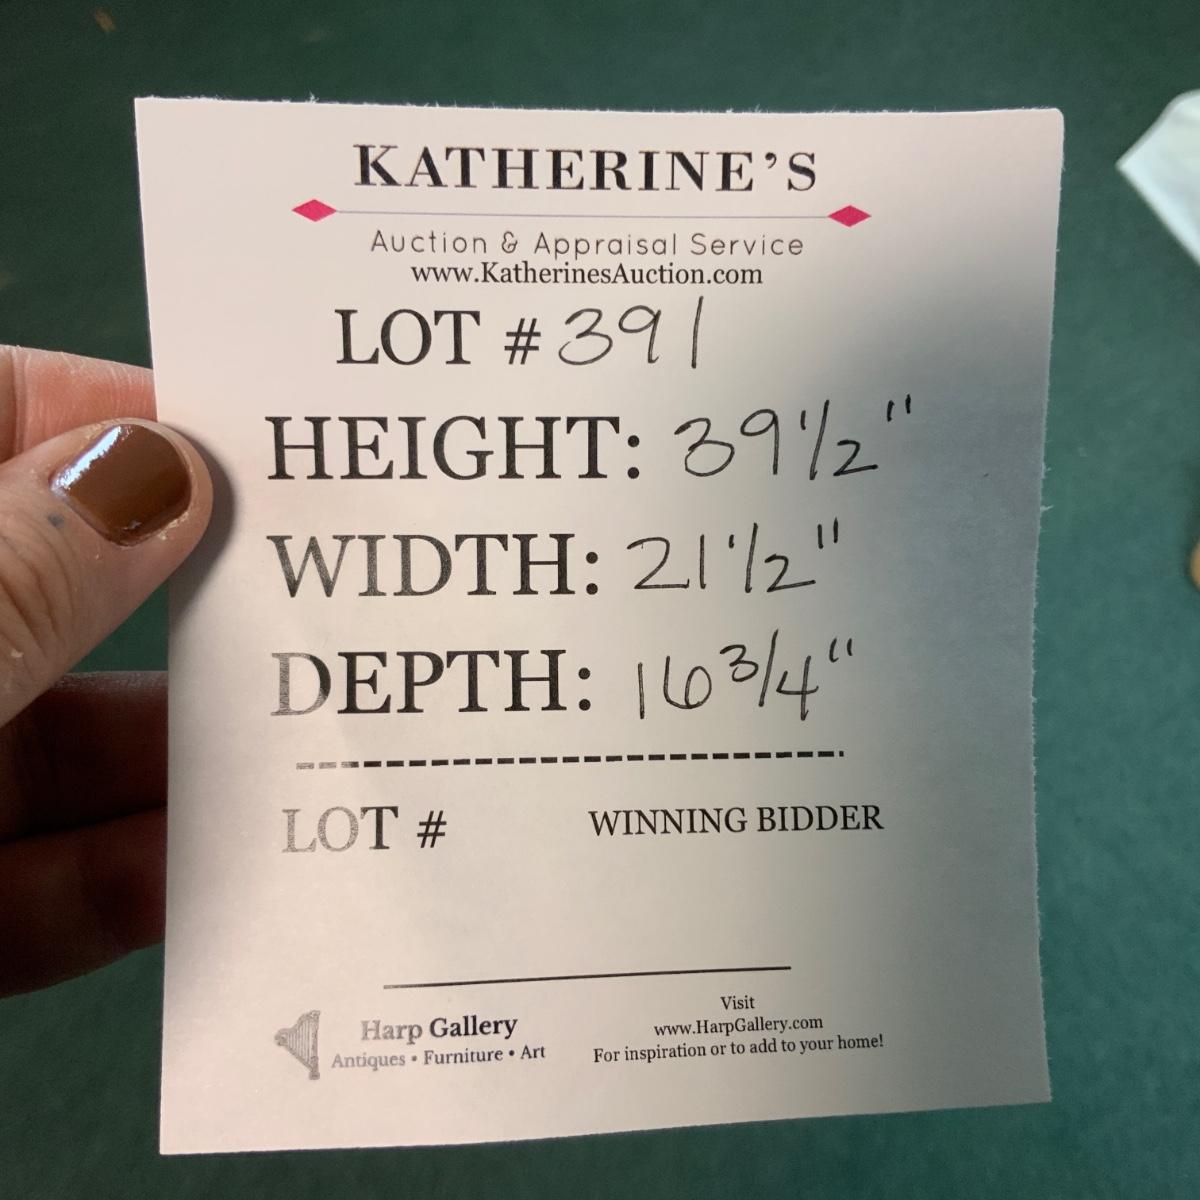 KATHERINE'S
Auction & Appraisal Service
www.KatherinesAuction.com
LOT # 391
HEIGHT: 39 1/2"
WIDTH: 21 1/2"
DEPTH: 16 3/4"
LOT # WINNING BIDDER
Harp Gallery
Antiques • Furniture • Art
Visit
www.HarpGallery.com
For inspiration or to add to your home!